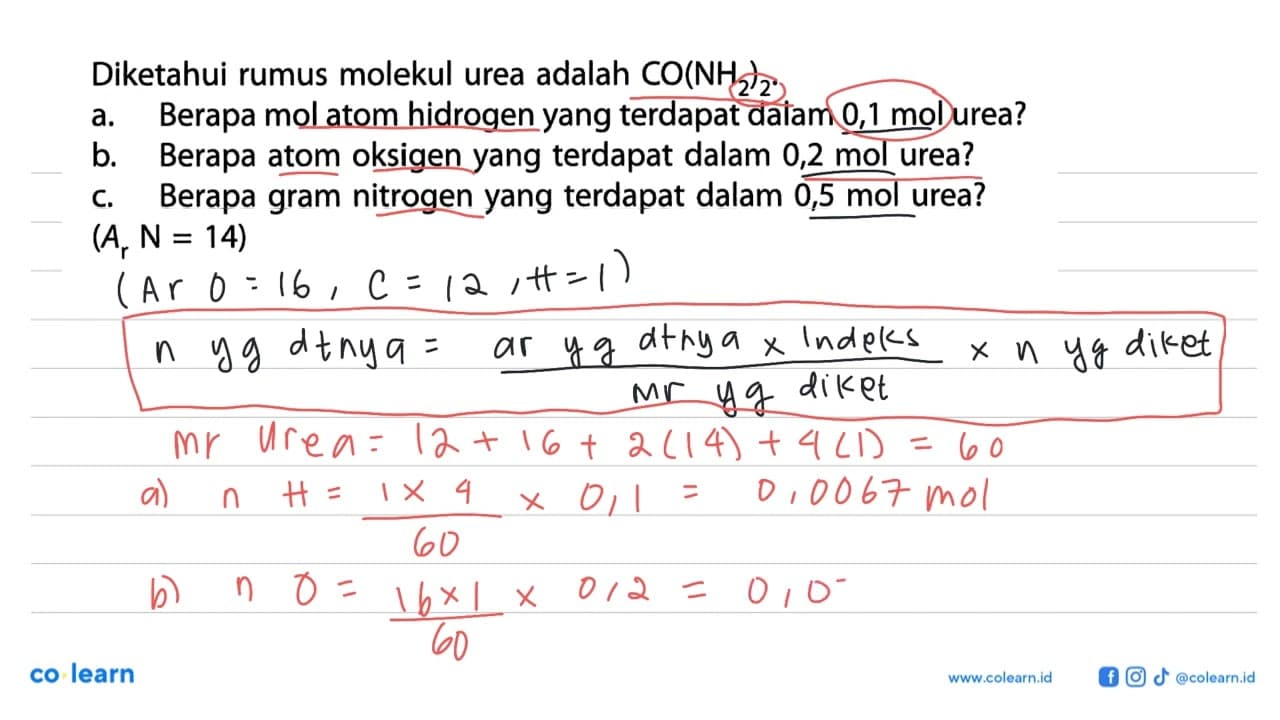 Diketahui rumus molekul urea adalah CO(NH2)2.
a. Berapa mol atom hidrogen yang terdapat dalam 0,1 mol urea?
b. Berapa atom oksigen yang terdapat dalam 0,2 mol urea?
c. Berapa gram nitrogen yang terdapat dalam 0,5 mol urea?
(Ar N = 14)
(Ar O = 16, C = 12, H = 1)
n yg dtnya = ar yg dtnya x Indeks / Mr yg diket x n yg diket
mr urea = 12 + 16 + 2(14) + 4(1) = 60
a) n H = 1 x 4 / 60 x 0,1 = 0,0067 mol
b) n O = 16 x 1 / 60 x 0,2 = 0,0
co learn
www.colearn.id
@colearn.id